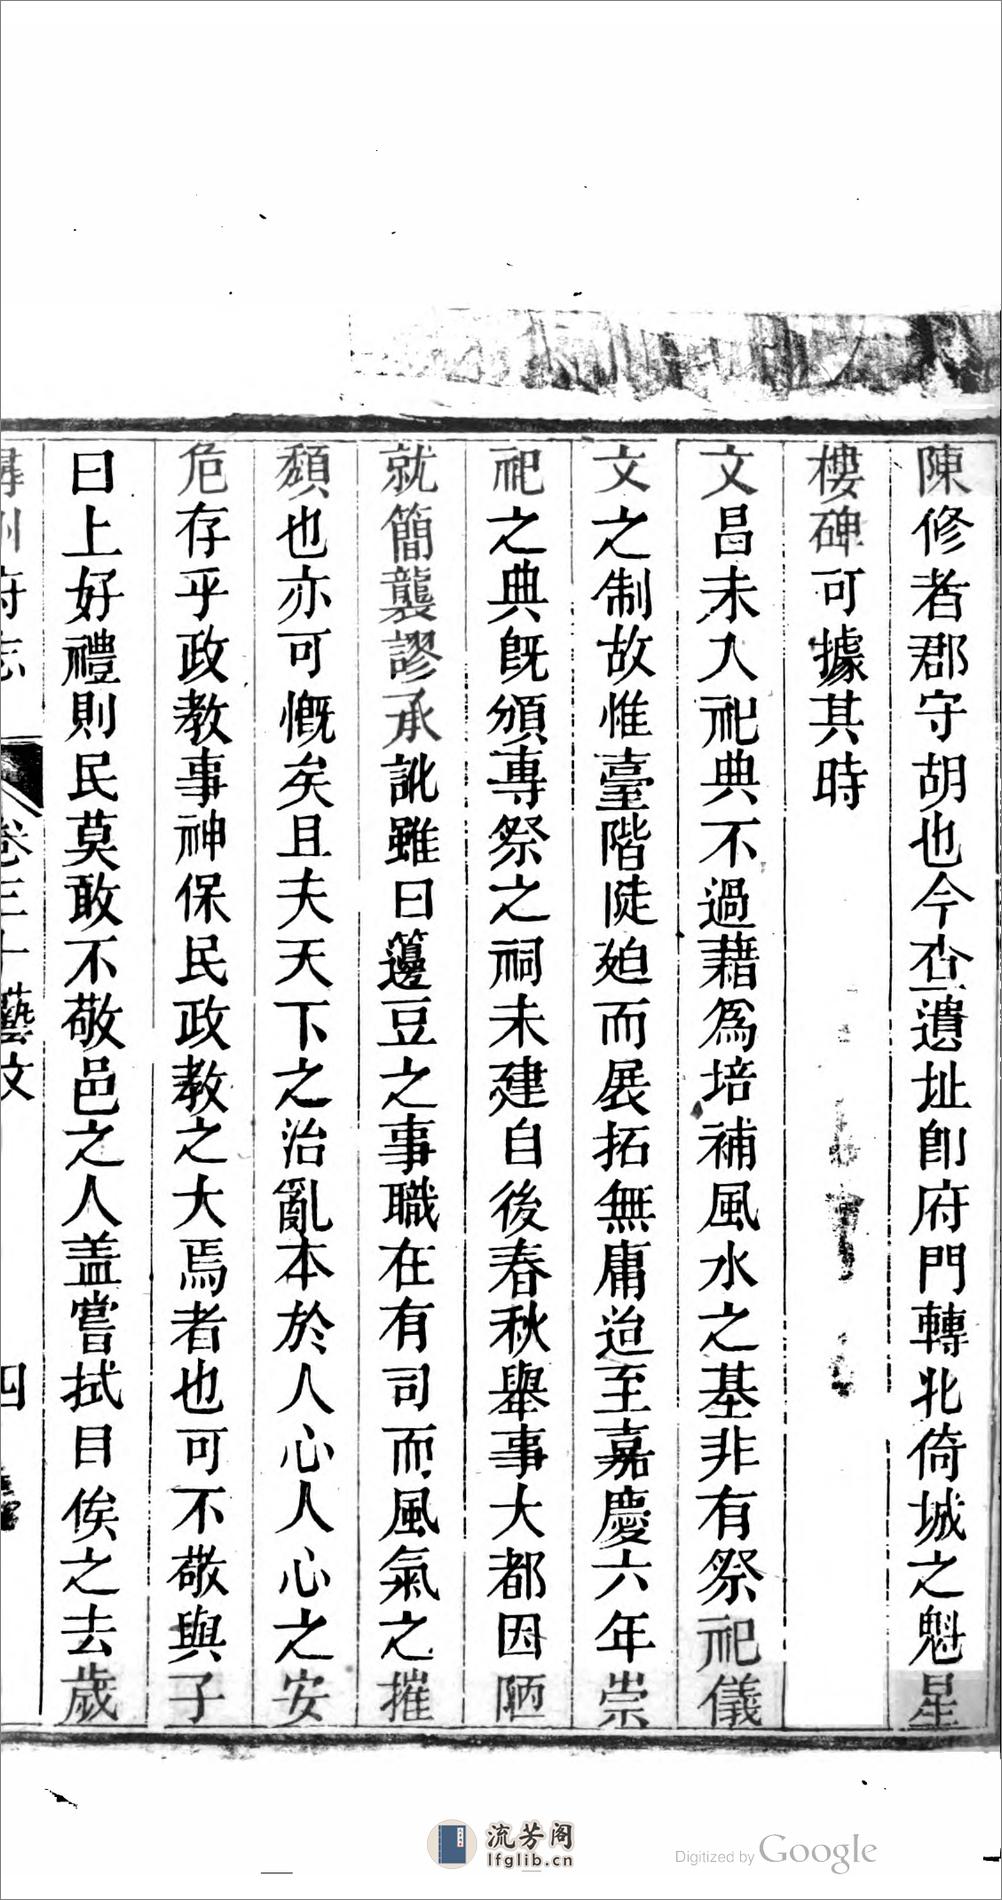 陳修者郡守胡也今查遺址卽府門轉北倚城之魁星
樓碑可據其時
文昌未入祀典不過藉爲培補風水之基非有祭祀儀
文之制故惟臺階陡𨒪而展拓無庸迨至嘉慶六年崇
祀之典旣頒專祭之祠未建自後春秋舉事大都因陋
就簡襲謬承訛雖曰籩豆之事職在有司而風氣之摧
頽也亦可慨矣且夫天下之治亂本於人心人心之安
危存乎政教事神保民政教之大焉者也可不敬與子
曰上好禮則民莫敢不敬邑之人盖嘗拭目俟之去歲
潯州府志 卷三十 藝文 四
流芳阁
lfglib.cn
Digitized by Google